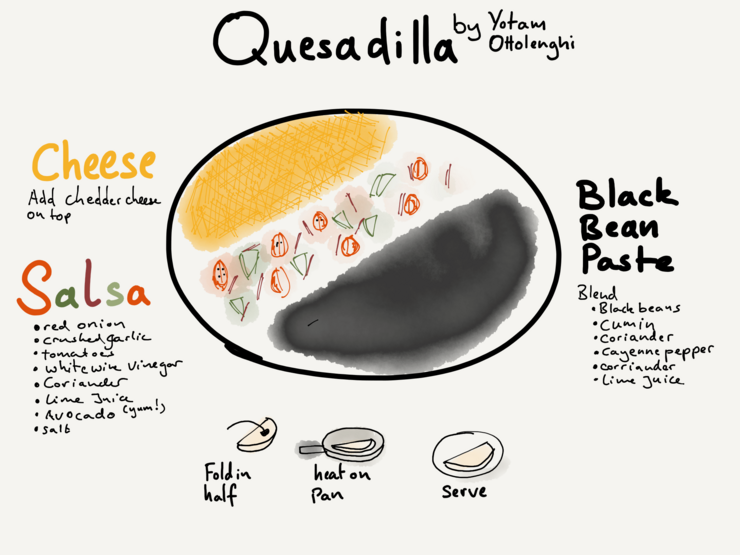 Quesadilla by Yotam
Ottolenghi
Cheese
Add chedder cheese
on top
Salsa
• red onion
• crushed garlic
• tomatoes
• white wine vinegar
• Coriander
• Lime Juice
• Avocado (yum!)
• salt
Black
Bean
Paste
Blend
• Black beans
• Cumin
• Coriander
• Cayenne pepper
• corriander
• Lime Juice
Fold in
half
heat on
Pan
Serve